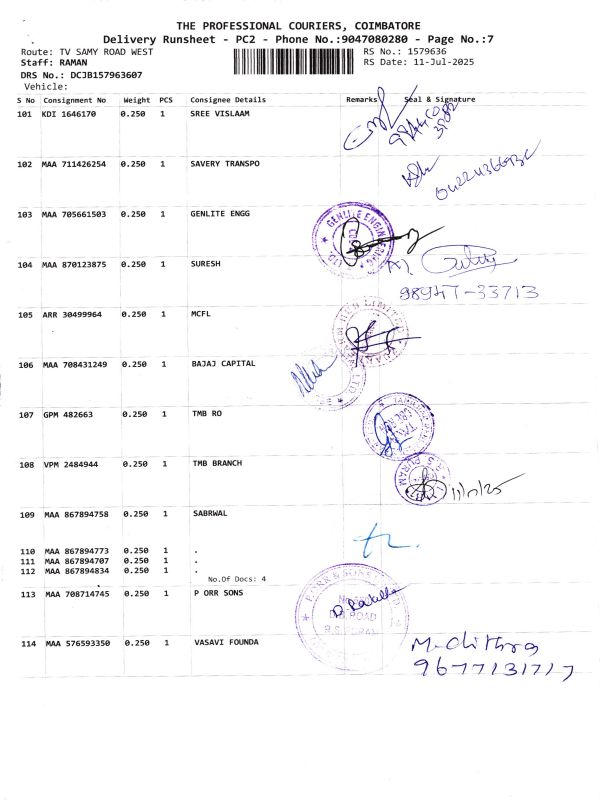 THE PROFESSIONAL COURIERS, COIMBATORE
Delivery Runsheet - PC2 - Phone No.:9047080280 - Page No.:7
Route: TV SAMY ROAD WEST RS No.: 1579636
Staff: RAMAN RS Date: 11-Jul-2025
DRS No.: DCJB157963607
Vehicle:
S No Consignment No Weight PCS Consignee Details Remarks Seal & Signature
101 KDI 1646170 0.250 1 SREE VISLAAM
102 MAA 711426254 0.250 1 SAVERY TRANSPO
103 MAA 705661503 0.250 1 GENLITE ENGG
GENLITE ENGINEERING
104 MAA 870123875 0.250 1 SURESH
98947-33713
105 ARR 30499964 0.250 1 MCFL
106 MAA 708431249 0.250 1 BAJAJ CAPITAL
107 GPM 482663 0.250 1 TMB RO
108 VPM 2484944 0.250 1 TMB BRANCH
R.S. PURAM
11/7/25
109 MAA 867894758 0.250 1 SABRWAL
110 MAA 867894773 0.250 1 .
111 MAA 867894707 0.250 1 .
112 MAA 867894834 0.250 1 .
No.Of Docs: 4
113 MAA 708714745 0.250 1 P ORR SONS
P. ORR & SONS
ROAD
R.S. PURAM
114 MAA 576593350 0.250 1 VASAVI FOUNDA
9677131717